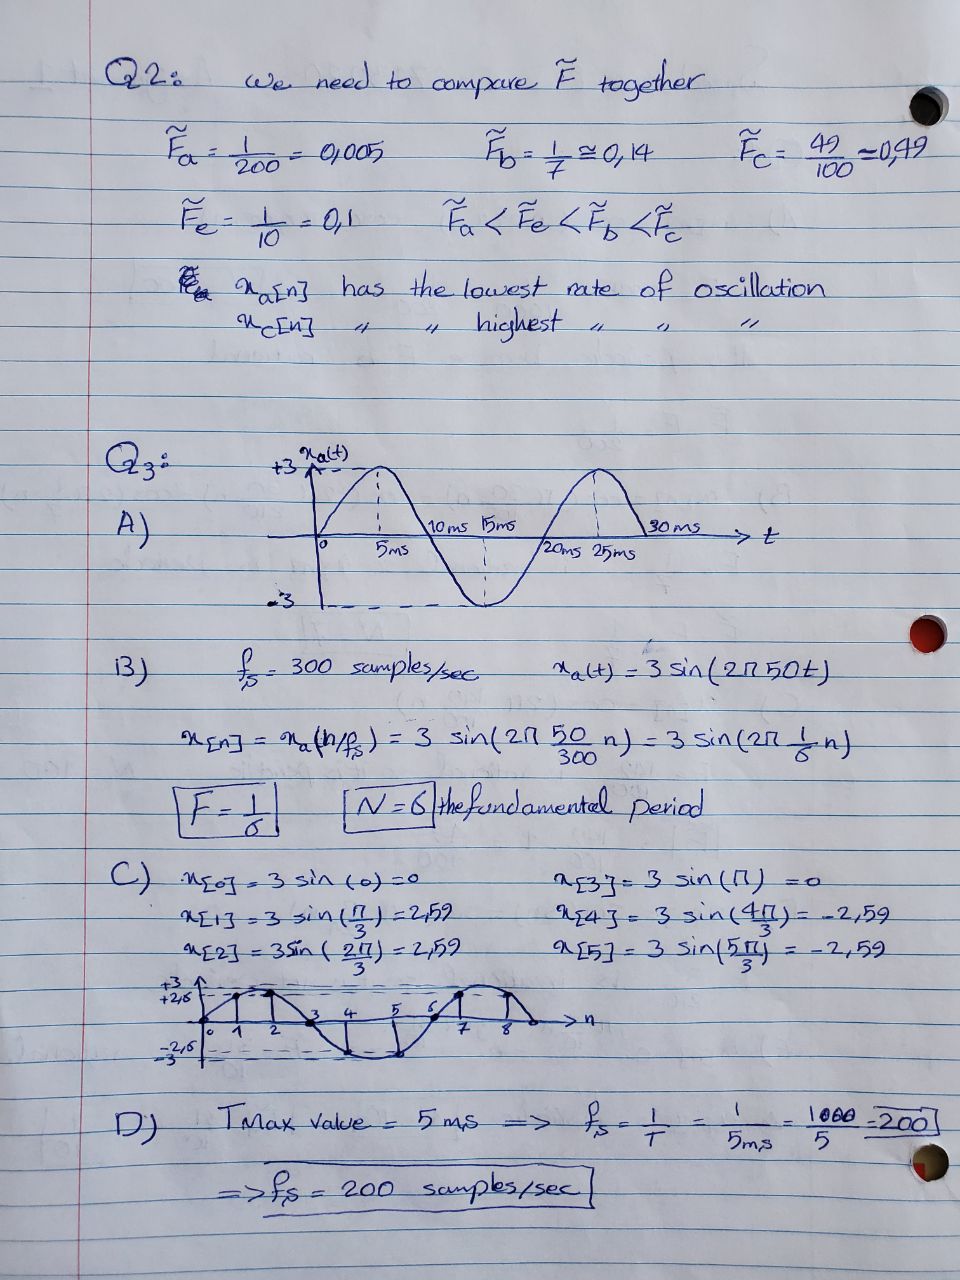 Q2: We need to compare F̃ together
F̃a = 1/200 = 0,005 F̃b = 1/7 ≅ 0,14 F̃c = 49/100 = 0,49
F̃e = 1/10 = 0,1 F̃a < F̃e < F̃b < F̃c
xa[n] has the lowest rate of oscillation
xc[n] " " highest " " "
Q3:
A)
xa(t)
+3
0 5ms 10ms 15ms 20ms 25ms 30ms t
-3
B) fs = 300 samples/sec xa(t) = 3 sin(2π50t)
x[n] = xa(n/fs) = 3 sin(2π 50/300 n) = 3 sin(2π 1/6 n)
F = 1/6 N = 6 the fundamental period
C) x[0] = 3 sin(0) = 0 x[3] = 3 sin(π) = 0
x[1] = 3 sin(π/3) = 2,59 x[4] = 3 sin(4π/3) = -2,59
x[2] = 3 sin(2π/3) = 2,59 x[5] = 3 sin(5π/3) = -2,59
+3
+2,6
0 1 2 3 4 5 6 7 8 n
-2,6
-3
D) TMax value = 5 ms => fs = 1/T = 1/5ms = 1000/5 = 200
=> fs = 200 samples/sec